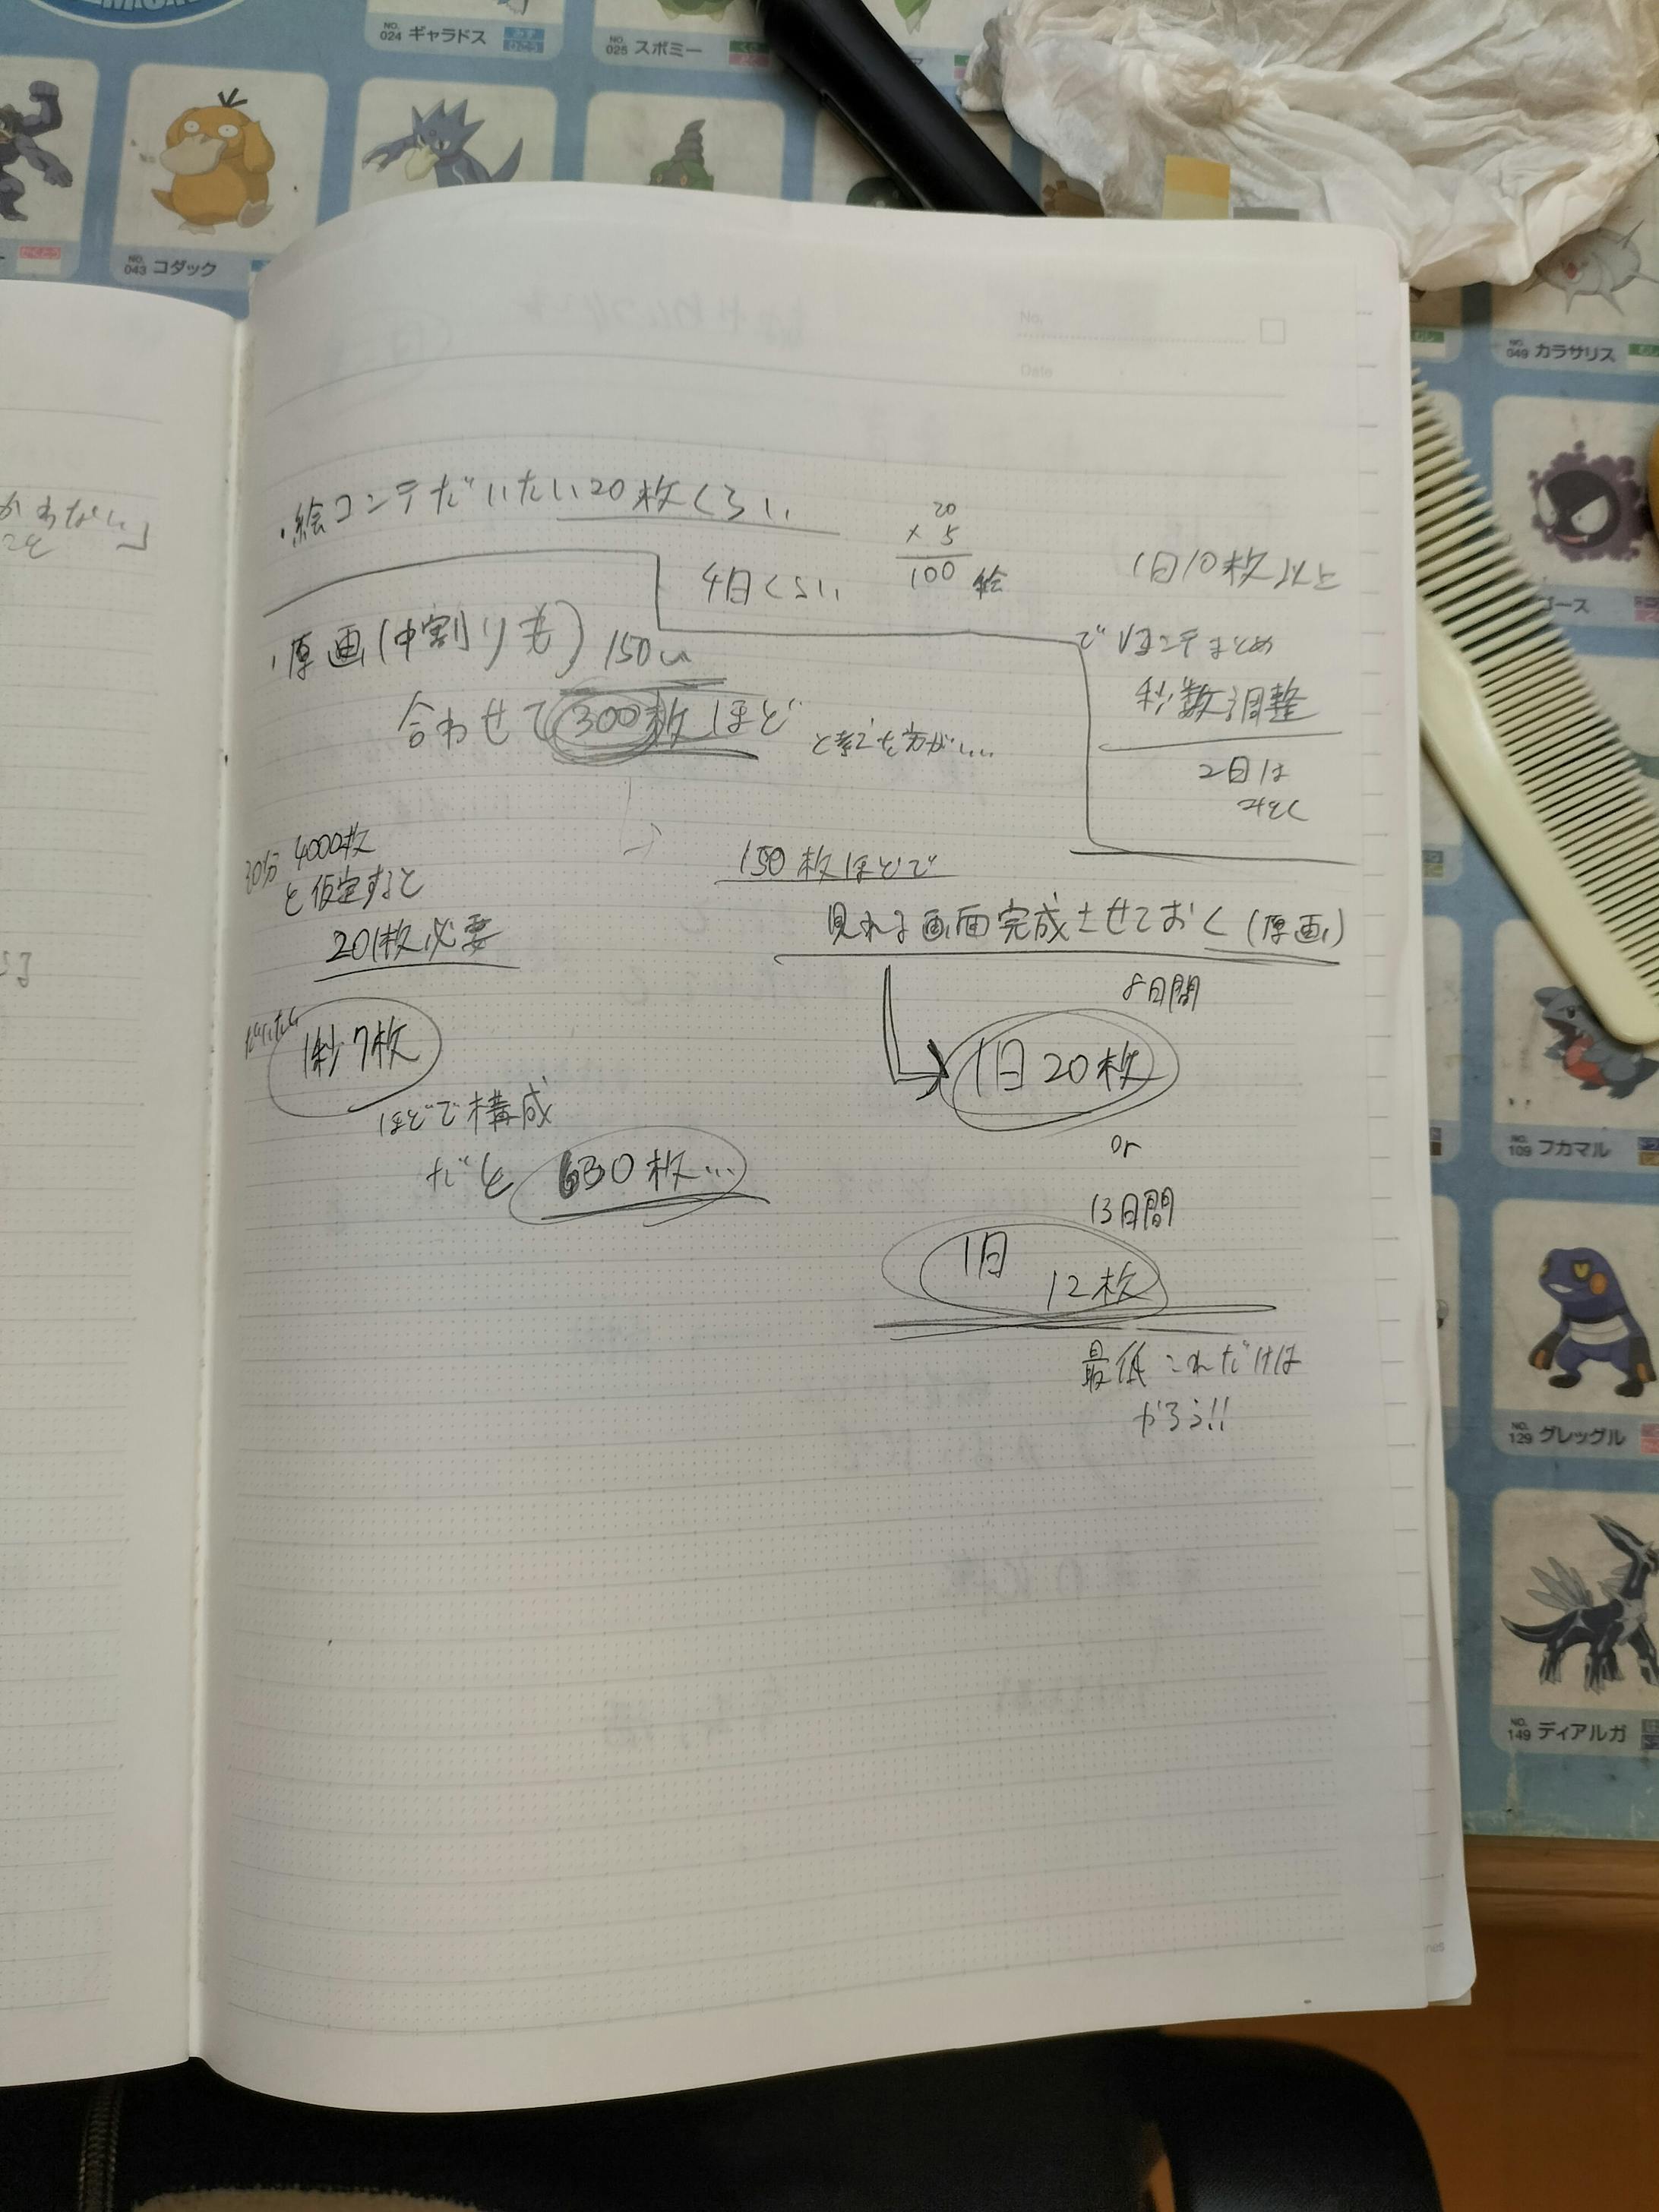 NO. 024 ギャラドス
みず
ひこう
NO. 025 スボミー
くさ
どく
NO. 043 コダック
かくとう
NO. 049 カラサリス
むし
ゴース
NO. 109 フカマル
NO. 129 グレッグル
NO. 149 ディアルガ
No.
Date
・絵コンテだいたい20枚くらい
4日くらい
20
× 5
100 絵
1日10枚以上
で Vコンテまとめ
秒数調整
2日は
みとく
・原画(中割りも) 150
合わせて300枚ほど
と考えた方が….
30分 4000枚
と仮定すると
201枚必要
だいたい
1秒7枚
ほどで構成
だと 630枚…
150枚ほどで
見れる画面完成させておく(原画)
8日間
1日20枚
or
13日間
1日 12枚
最低これだけは
やろう!!